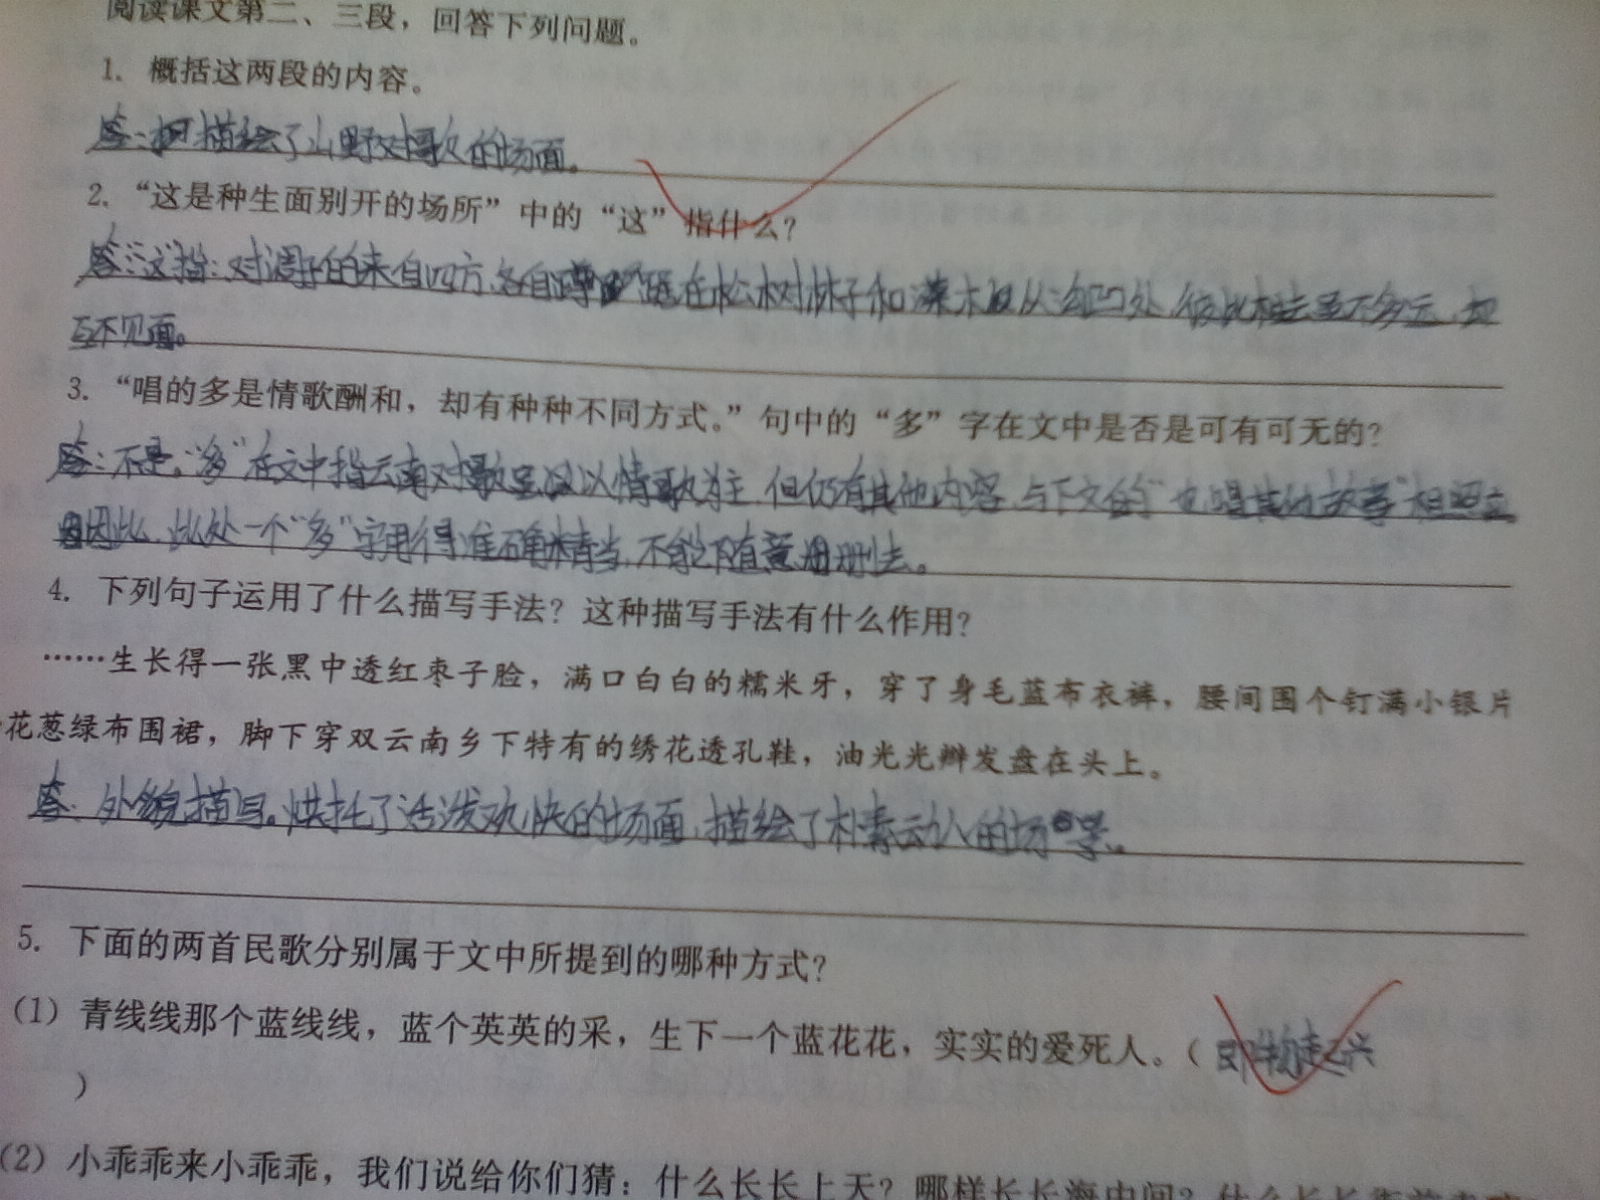 阅读课文第二、三段，回答下列问题。
1. 概括这两段的内容。
答：描绘了山野对歌的场面。
2. “这是种生面别开的场所”中的“这”指什么？
答：“这”指：对调子的来自四方，各自蹲踞在松树林子和灌木丛沟凹处，彼此相去虽不多远，却
互不见面。
3. “唱的多是情歌酬和，却有种种不同方式。”句中的“多”字在文中是否是可有可无的？
答：不是。“多”在文中指云南对歌是以情歌为主，但仍有其他内容，与下文的“也唱其他故事”相照应
因此，此处一个“多”字用得准确精当，不能随意删去。
4. 下列句子运用了什么描写手法？这种描写手法有什么作用？
……生长得一张黑中透红枣子脸，满口白白的糯米牙，穿了身毛蓝布衣裤，腰间围个钉满小银片
花葱绿布围裙，脚下穿双云南乡下特有的绣花透孔鞋，油光光辫发盘在头上。
答：外貌描写。烘托了活泼欢快的场面，描绘了朴素动人的场景。
5. 下面的两首民歌分别属于文中所提到的哪种方式？
（1）青线线那个蓝线线，蓝个英英的采，生下一个蓝花花，实实的爱死人。（即物起兴
）
（2）小乖乖来小乖乖，我们说给你们猜：什么长长上天？哪样长长海中间？什么长长